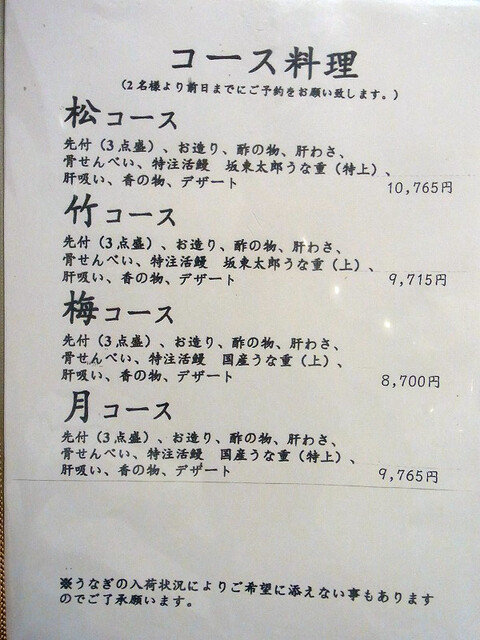 コース料理
（2名様より前日までにご予約をお願い致します。）
松コース
先付（3点盛）、お造り、酢の物、肝わさ、
骨せんべい、特注活鰻　坂東太郎うな重（特上）、
肝吸い、香の物、デザート
10,765円
竹コース
先付（3点盛）、お造り、酢の物、肝わさ、
骨せんべい、特注活鰻　坂東太郎うな重（上）、
肝吸い、香の物、デザート
9,715円
梅コース
先付（3点盛）、お造り、酢の物、肝わさ、
骨せんべい、特注活鰻　国産うな重（上）、
肝吸い、香の物、デザート
8,700円
月コース
先付（3点盛）、お造り、酢の物、肝わさ、
骨せんべい、特注活鰻　国産うな重（特上）、
肝吸い、香の物、デザート
9,765円
※うなぎの入荷状況によりご希望に添えない事もあります
のでご了承願います。